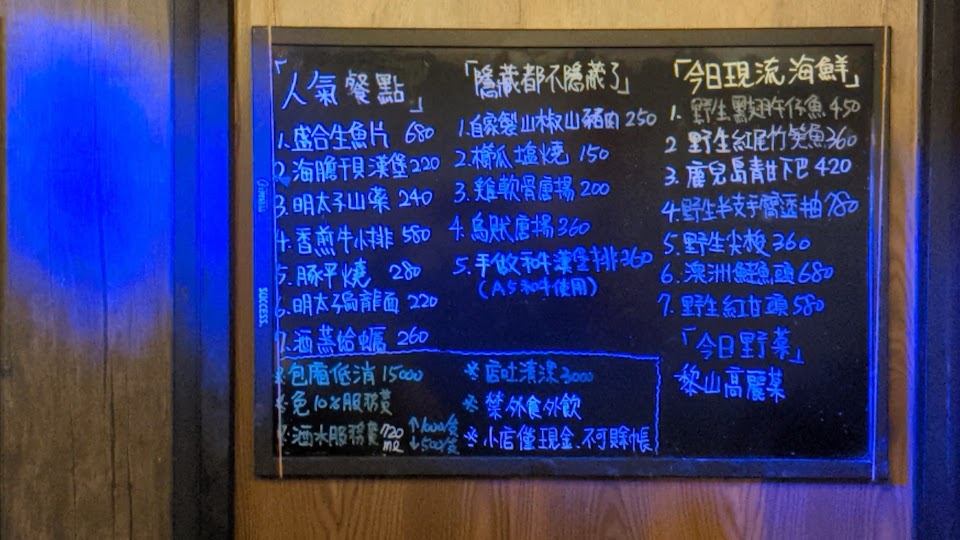 「人氣餐點」
1.盛合生魚片 680
2.海膽干貝漢堡220
3.明太子山藥 240
4.香煎牛小排 580
5.豚平燒 280
6.明太子烏龍面 220
7.酒蒸蛤蠣 260
「隱藏都不隱藏了」
1.自家製山椒山豬肉250
2.櫛瓜塩燒 150
3.雞軟骨唐揚200
4.烏賊唐揚360
5.手做和牛漢堡排360
(A5和牛使用)
「今日現流海鮮」
1.野生黑翅午仔魚450
2 野生紅尾竹筴魚360
3.鹿兒島青甘下巴420
4.野生半支手臂透抽780
5.野生尖梭360
6.澳洲鱷魚頭680
7.野生紅甘頭580
「今日野菜」
黎山高麗菜
※包廂低消15000
※免10%服務費
※酒水服務費720ml ↑1000/
↓500/
※店吐清潔3000
※禁外食外飲
※小店僅現金.不可賒帳
SUCCESS.